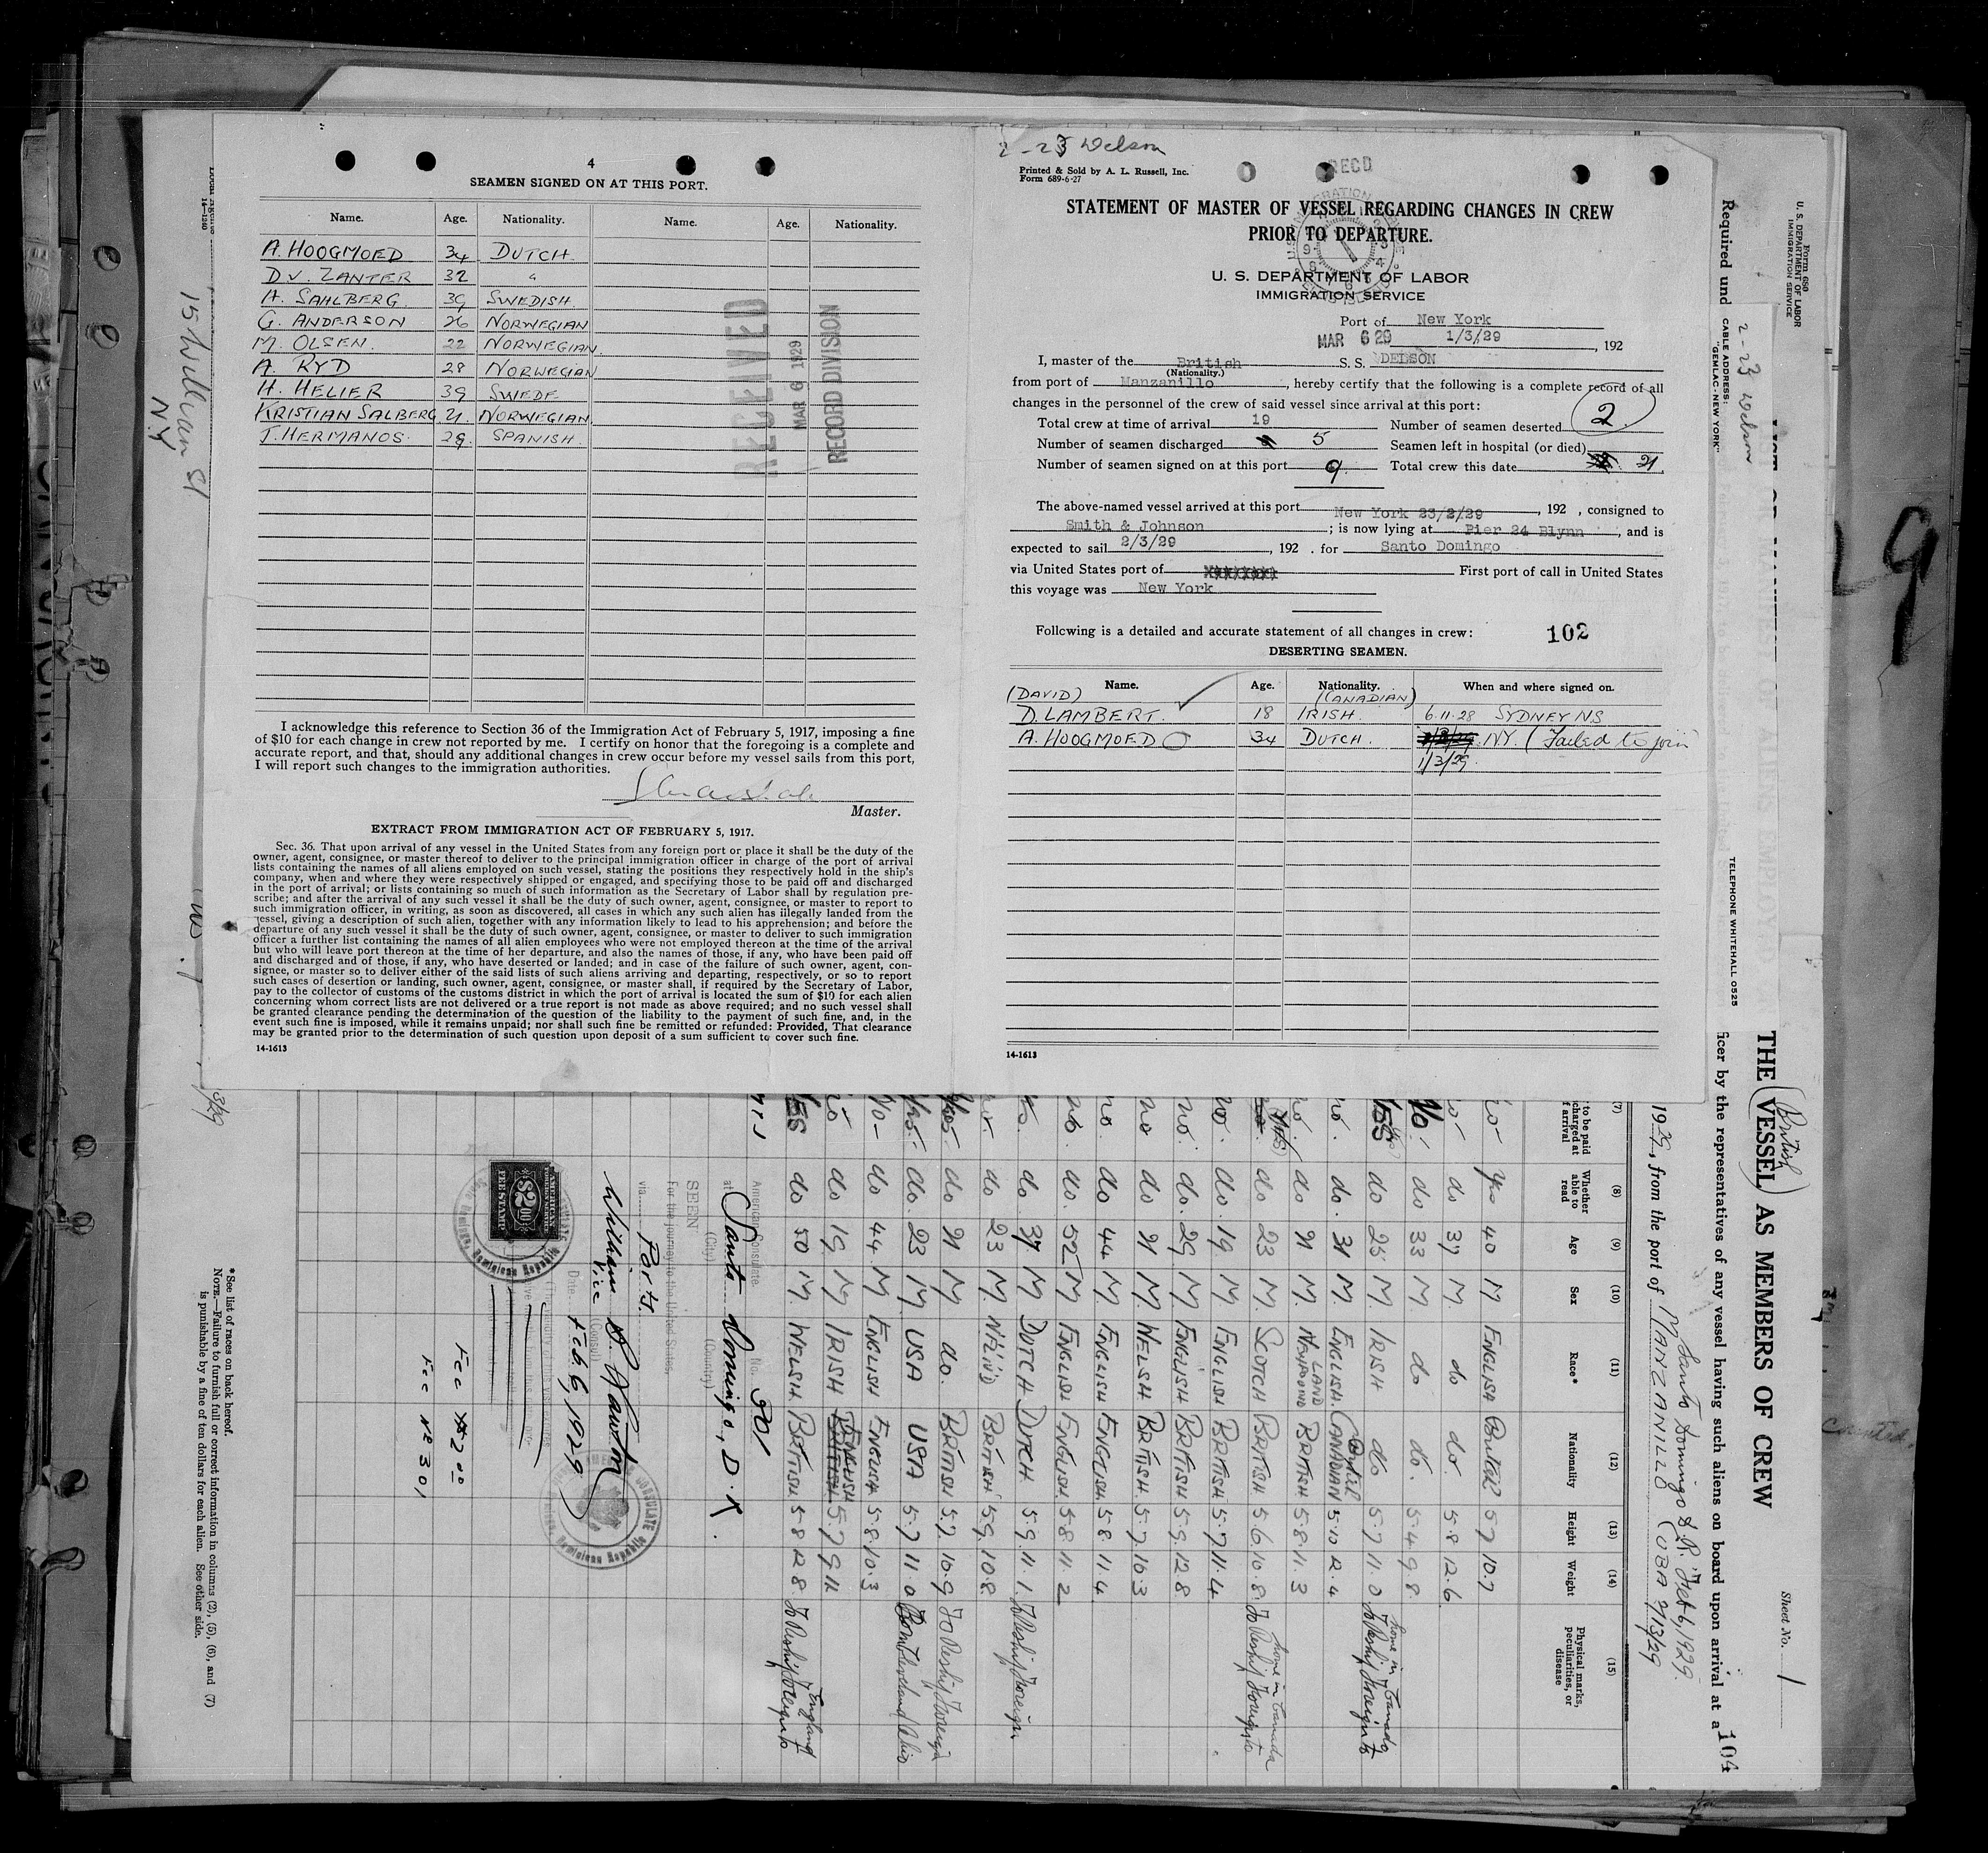 4
SEAMEN SIGNED ON AT THIS PORT.
Name. Age. Nationality. Name. Age. Nationality.
A. HOOGMOED 34 DUTCH
D.V. ZANTER 32 "
H. SAHLBERG 39 SWEDISH.
G. ANDERSON 26 NORWEGIAN
M. OLSEN. 22 NORWEGIAN
A. RYD 28 NORWEGIAN
H. HELIER 39 SWEDE
KRISTIAN SALBERG 21. NORWEGIAN
J. HERMANOS. 29. SPANISH.
RECEIVED
MAR 6 1929
RECORD DIVISION
I acknowledge this reference to Section 36 of the Immigration Act of February 5, 1917, imposing a fine
of $10 for each change in crew not reported by me. I certify on honor that the foregoing is a complete and
accurate report, and that, should any additional changes in crew occur before my vessel sails from this port,
I will report such changes to the immigration authorities.
Master.
EXTRACT FROM IMMIGRATION ACT OF FEBRUARY 5, 1917.
Sec. 36. That upon arrival of any vessel in the United States from any foreign port or place it shall be the duty of the
owner, agent, consignee, or master thereof to deliver to the principal immigration officer in charge of the port of arrival
lists containing the names of all aliens employed on such vessel, stating the positions they respectively hold in the ship's
company, when and where they were respectively shipped or engaged, and specifying those to be paid off and discharged
in the port of arrival; or lists containing so much of such information as the Secretary of Labor shall by regulation pre-
scribe; and after the arrival of any such vessel it shall be the duty of such owner, agent, consignee, or master to report to
such immigration officer, in writing, as soon as discovered, all cases in which any such alien has illegally landed from the
vessel, giving a description of such alien, together with any information likely to lead to his apprehension; and before the
departure of any such vessel it shall be the duty of such owner, agent, consignee, or master to deliver to such immigration
officer a further list containing the names of all alien employees who were not employed thereon at the time of the arrival
but who will leave port thereon at the time of her departure, and also the names of those, if any, who have been paid off
and discharged and of those, if any, who have deserted or landed; and in case of the failure of such owner, agent, con-
signee, or master so to deliver either of the said lists of such aliens arriving and departing, respectively, or so to report
such cases of desertion or landing, such owner, agent, consignee, or master shall, if required by the Secretary of Labor,
pay to the collector of customs of the customs district in which the port of arrival is located the sum of $10 for each alien
concerning whom correct lists are not delivered or a true report is not made as above required; and no such vessel shall
be granted clearance pending the determination of the question of the liability to the payment of such fine, and, in the
event such fine is imposed, while it remains unpaid; nor shall such fine be remitted or refunded: Provided, That clearance
may be granted prior to the determination of such question upon deposit of a sum sufficient to cover such fine.
14-1613
15 William St
N.Y
2-23 Delson
Printed & Sold by A. L. Russell, Inc.
Form 689-6-27
RECD
STATEMENT OF MASTER OF VESSEL REGARDING CHANGES IN CREW
PRIOR TO DEPARTURE.
U. S. DEPARTMENT OF LABOR
IMMIGRATION SERVICE
Port of New York
MAR 6 29 1/3/29, 192
I, master of the British S.S. DELSON
(Nationality.)
from port of Manzanillo, hereby certify that the following is a complete record of all
changes in the personnel of the crew of said vessel since arrival at this port:
Total crew at time of arrival 19 Number of seamen deserted 2.
Number of seamen discharged 5 Seamen left in hospital (or died)
Number of seamen signed on at this port 9. Total crew this date 21.
The above-named vessel arrived at this port New York 23/2/29, 192 , consigned to
Smith & Johnson; is now lying at Pier 24 Blynn, and is
expected to sail 2/3/29, 192 . for Santo Domingo
via United States port of First port of call in United States
this voyage was New York
Following is a detailed and accurate statement of all changes in crew: 102
DESERTING SEAMEN.
Name. Age. Nationality. When and where signed on.
(DAVID) (CANADIAN)
D. LAMBERT. 18 IRISH. 6.11.28 SYDNEY NS
A. HOOGMOED 34 DUTCH. NY. (Failed to join
1/3/29.
14-1613
Form 680
U. S. DEPARTMENT OF LABOR
IMMIGRATION SERVICE
Required und
CABLE ADDRESS:
"GEMLAC-NEW YORK"
2-23 Delson
TELEPHONE WHITEHALL 0525
Sheet No. 1
British
THE VESSEL AS MEMBERS OF CREW
ficer by the representatives of any vessel having such aliens on board upon arrival at a
104
Santo Domingo D.R. Feb 6, 1929.
1929, from the port of MANZANILLO CUBA
(7) (8) (9) (10) (11) (12) (13) (14) (15)
to be paid Whether able to read Age Sex Race* Nationality Height Weight Physical marks, peculiarities, or disease
no yes 40 M ENGLISH British 5.7 10.7
no do 37 M. do do. 5.8 12.6
No. do 33 M. do do. 5.4 9.8.
YES do 25 M. IRISH do 5.7 11.0 To Reship Foreign to home in Canada
no. do. 31 M. ENGLISH. CANADIAN British 5.10 12.4
no. do 21 M. NEWFOUNDLAND BRITISH. 5.8. 11.3
do 23 M. SCOTCH BRITISH 5.6 10.8. To Reship Foreign to home in Canada
no. do. 19 M ENGLISH BRITISH. 5.7 11.4
no. do. 29. M. ENGLISH BRITISH 5.9. 12.8
no do 21 M. WELSH BRITISH. 5.7. 10.3
no. do 44 M ENGLISH ENGLISH. 5.8. 11.4
no. do. 52 M ENGLISH ENGLISH. 5.8. 11.2
no. do. 37 M DUTCH DUTCH. 5.9. 11.1. To Reship Foreign
no do 23 M NFLN'D BRITISH 5.9. 10.8.
do 21 M do. BRITISH 5.7. 10.9 To Reship Foreign
do. 23 M USA USA 5.7 11.0 Cleveland Ohio
No- do 44. M ENGLISH ENGLISH 5.8. 10.3
no do 19. M IRISH ENGLISH 5.7 9.12
YES do 50 M. WELSH BRITISH 5.8 12.8 To Reship Foreign to England
American Consulate. No. 301
at Santo Domingo, D.R.
(City) (Country)
SEEN
For the journey to the United States.
via Ports.
William
Vice (Consul)
Date Feb. 6, 1929
AMERICAN
$2.00
FEE STAMP
Fee $2.00
Fee No 301
* See list of races on back hereof.
NOTE.—Failure to furnish full or correct information in columns (2), (5), (6), and (7)
is punishable by a fine of ten dollars for each alien. See other side.